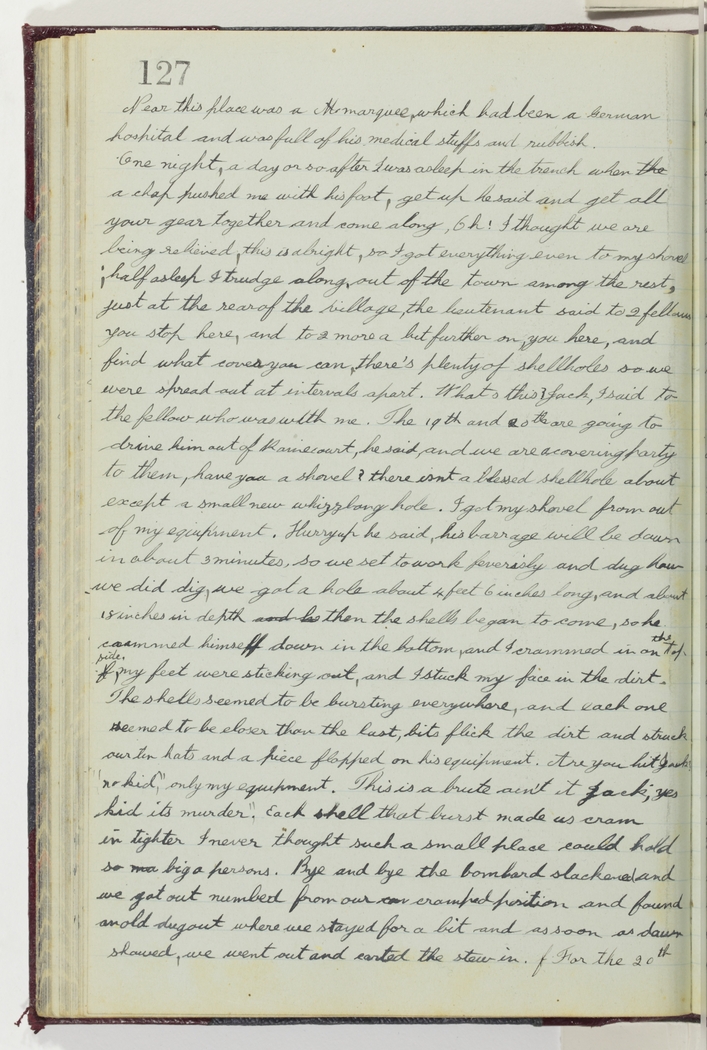 127
Near this place was a marquee, which had been a German
hospital and was full of his medical stuffs and rubbish.
One night, a day or so after I was asleep in the trench when the
a chap pushed me with his foot, get up he said and get all
your gear together and come along, Oh! I thought we are
being relieved, this is alright, so I got everything even to my shovel
, half asleep I trudge along, out of the town among the rest,
just at the rear of the village, the lieutenant said to 2 fellows
you stop here, and to 2 more a bit further on, you here, and
find what cover you can, there's plenty of shellholes so we
were spread out at intervals apart. What's this? Jack, I said to
the fellow who was with me. The 19th and 20th are going to
drive him out of Ramecourt, he said, and we are a covering party
to them, have you a shovel? there isnt a blessed shellhole about
except a small new whizzbang hole. I got my shovel from out
of my equipment. Hurry up he said, his barrage will be down
in about 3 minutes, so we set to work feverisly and dug how
we did dig, we got a hole about 4 feet 6 inches long, and about
18 inches in depth and he then the shells began to come, so he
crammed himself down in the bottom, and I crammed in on the top
side. my feet were sticking out, and I stuck my face in the dirt.
The shells seemed to be bursting everywhere, and each one
seemed to be closer than the last, bits flick the dirt and struck
our tin hats and a piece flopped on his equipment. Are you hit Jack?
"no kid," only my equipment. This is a brute ain't it Jack; yes
kid its murder". Each shell that burst made us cram
in tighter I never thought such a small place could hold
so ma big a persons. Bye and bye the bombard slackened and
we got out numbed from our con cramped position and found
an old dugout where we stayed for a bit and as soon as dawn
showed, we went out and carted the stew in. For the 20th